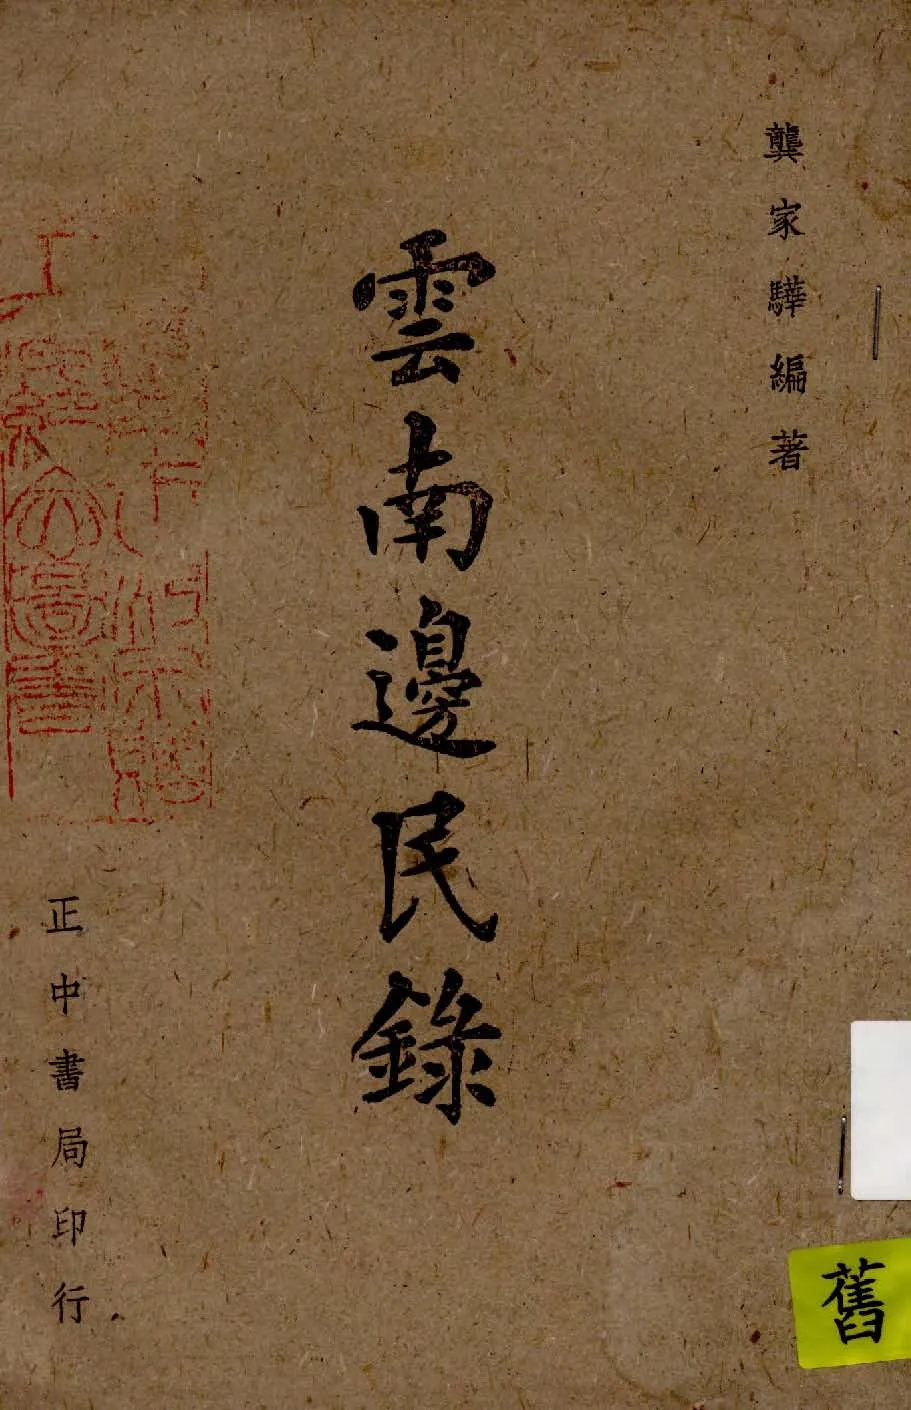 龔家驊編著
雲南邊民錄
正中書局印行
舊